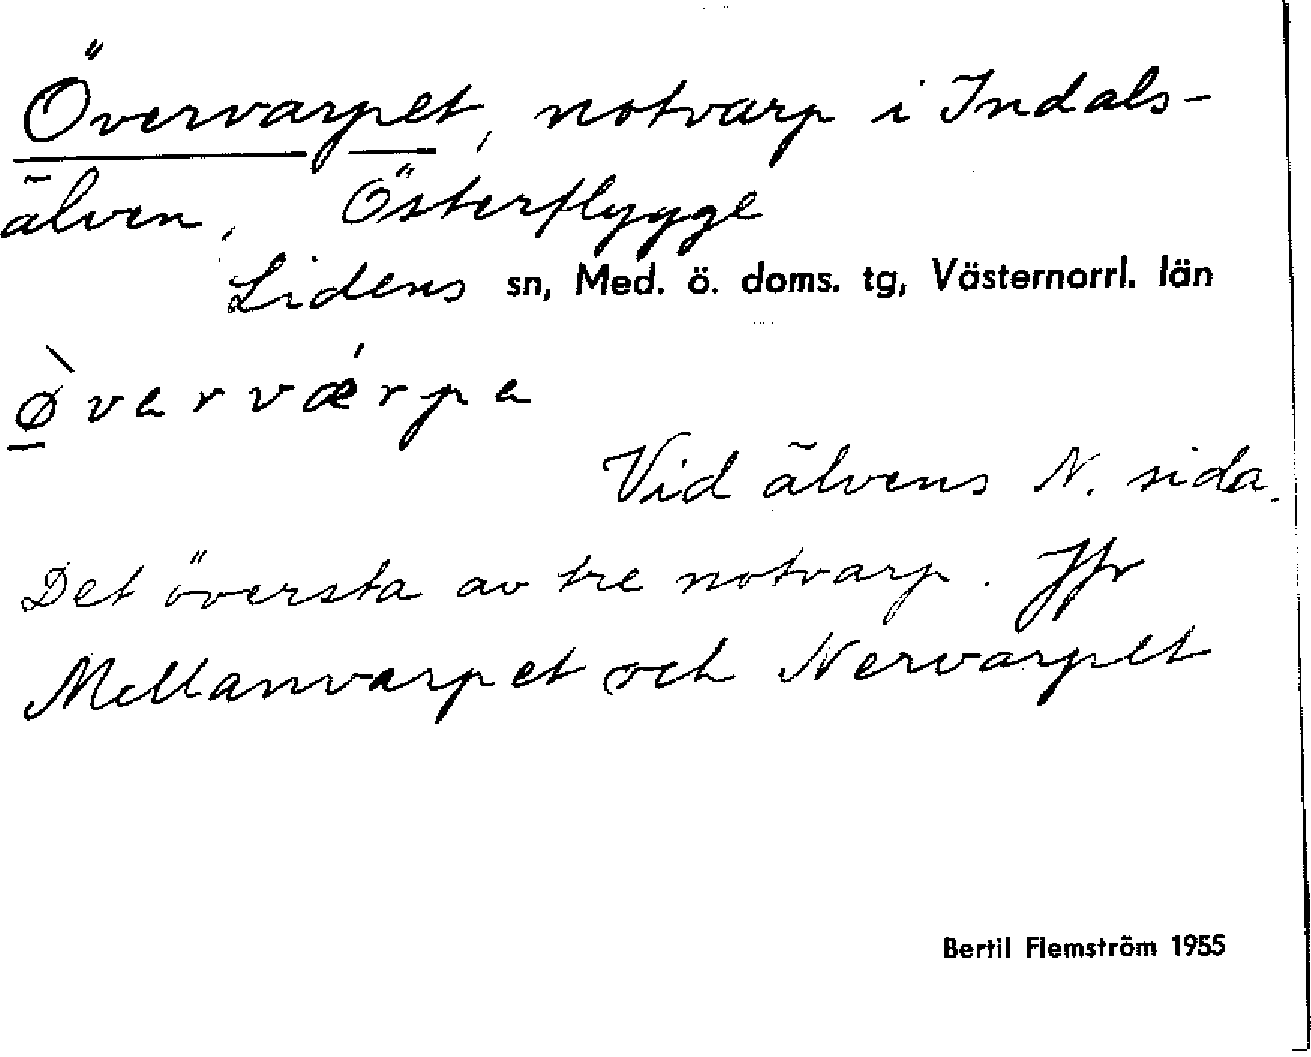 Övervarpet, notvarp i Indals-
älven, Österflygge
Lidens sn, Med. ö. doms. tg, Västernorrl. län
ø̀verværpe
Vid älvens N. sida.
Det översta av tre notvarp. Jfr
Mellanvarpet och Nervarpet
Bertil Flemström 1955